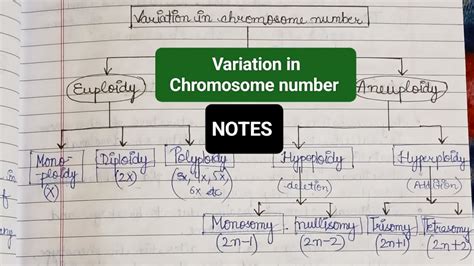 Variation in chromosome number
Variation in
Chromosome number
Euploidy
Aneuploidy
NOTES
Mono-
ploidy
(x)
Diploidy
(2x)
Polyploidy
(3x, 4x, 5x
6x
Hypoploidy
(deletion)
Hyperploidy
(Addition)
Monosomy
(2n-1)
nullisomy
(2n-2)
Trisomy
(2n+1)
Tetrasomy
(2n+2)
in
of
any